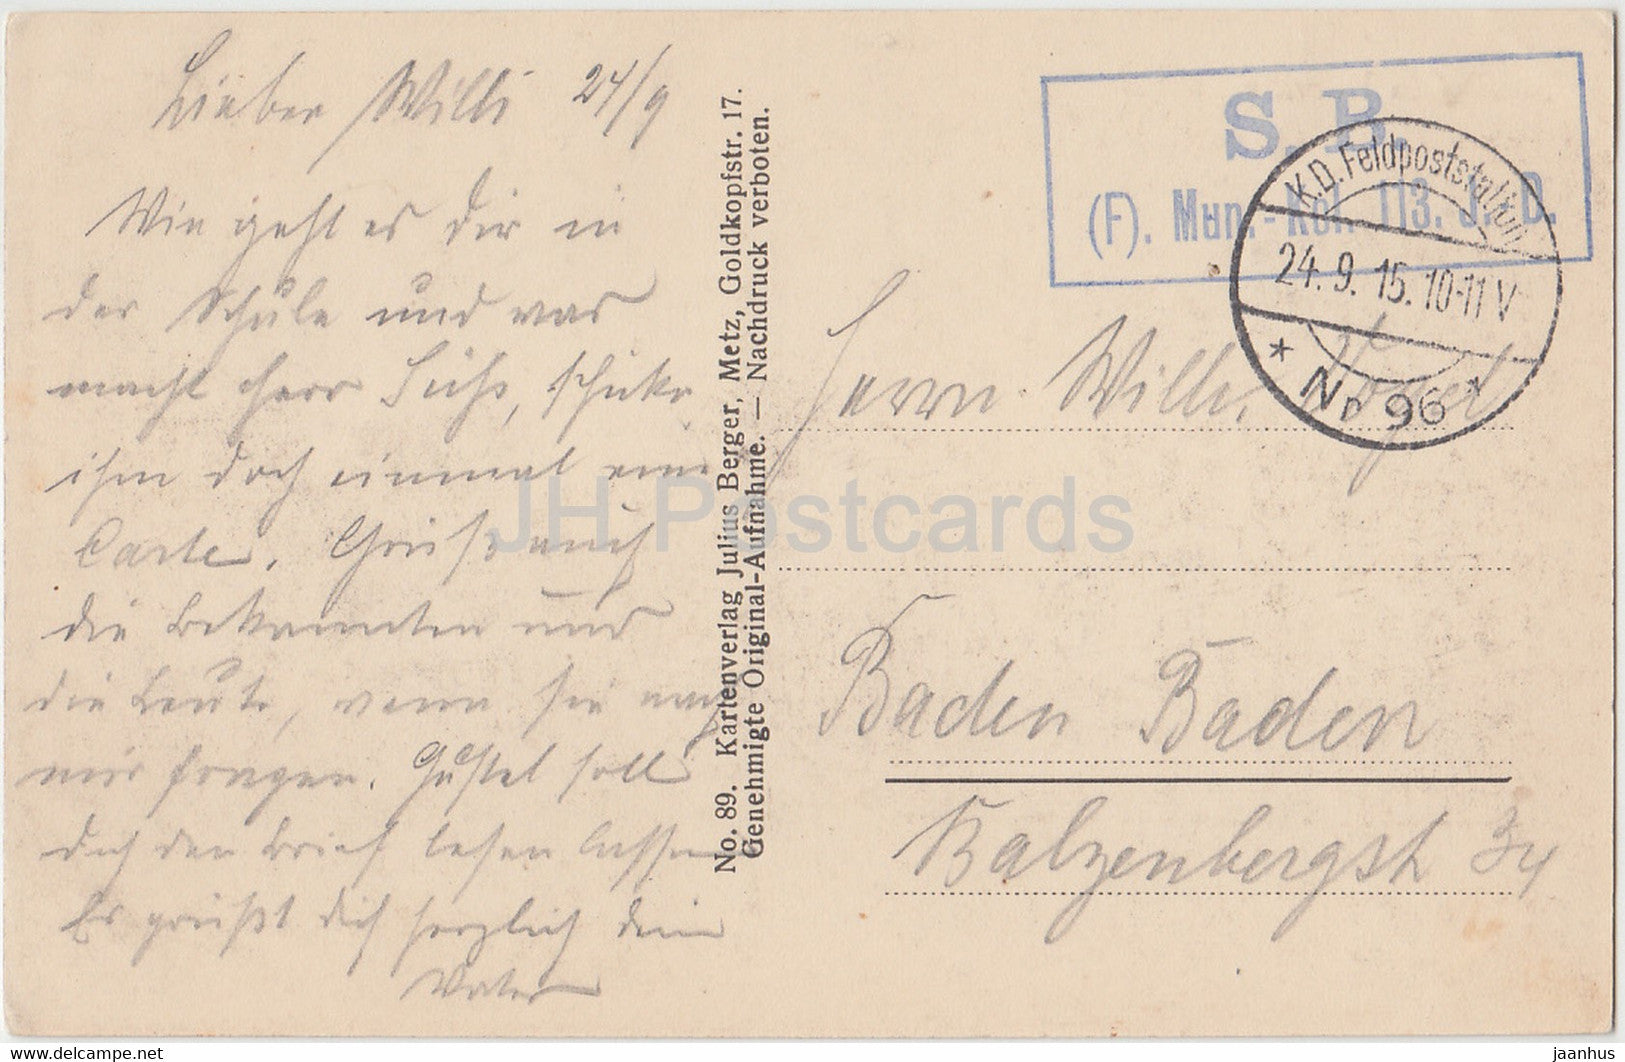 Lieber Willi 24/9
Wie geht es dir in
der Schule und was
macht Herr, schicke
ihm doch einmal eine
Carte. Grüß auch
die Bekannten und
die Leute, wenn sie nach
mir fragen. Gustel soll
dich den Brief lesen lassen
Es grüßt dich herzlich dein
Vater
No. 89. Kartenverlag Julius Berger, Metz, Goldkopfstr. 17.
Genehmigte Original-Aufnahme. — Nachdruck verboten.
S. B.
(F). Mun.-Kol. 113. J.-D.
K.D. Feldpoststation
24. 9. 15. 10-11 V
* Nr 96 *
Herrn Willi
Baden Baden
Balzenbergstr 34
JH Postcards
jaanhus
www.delcampe.net